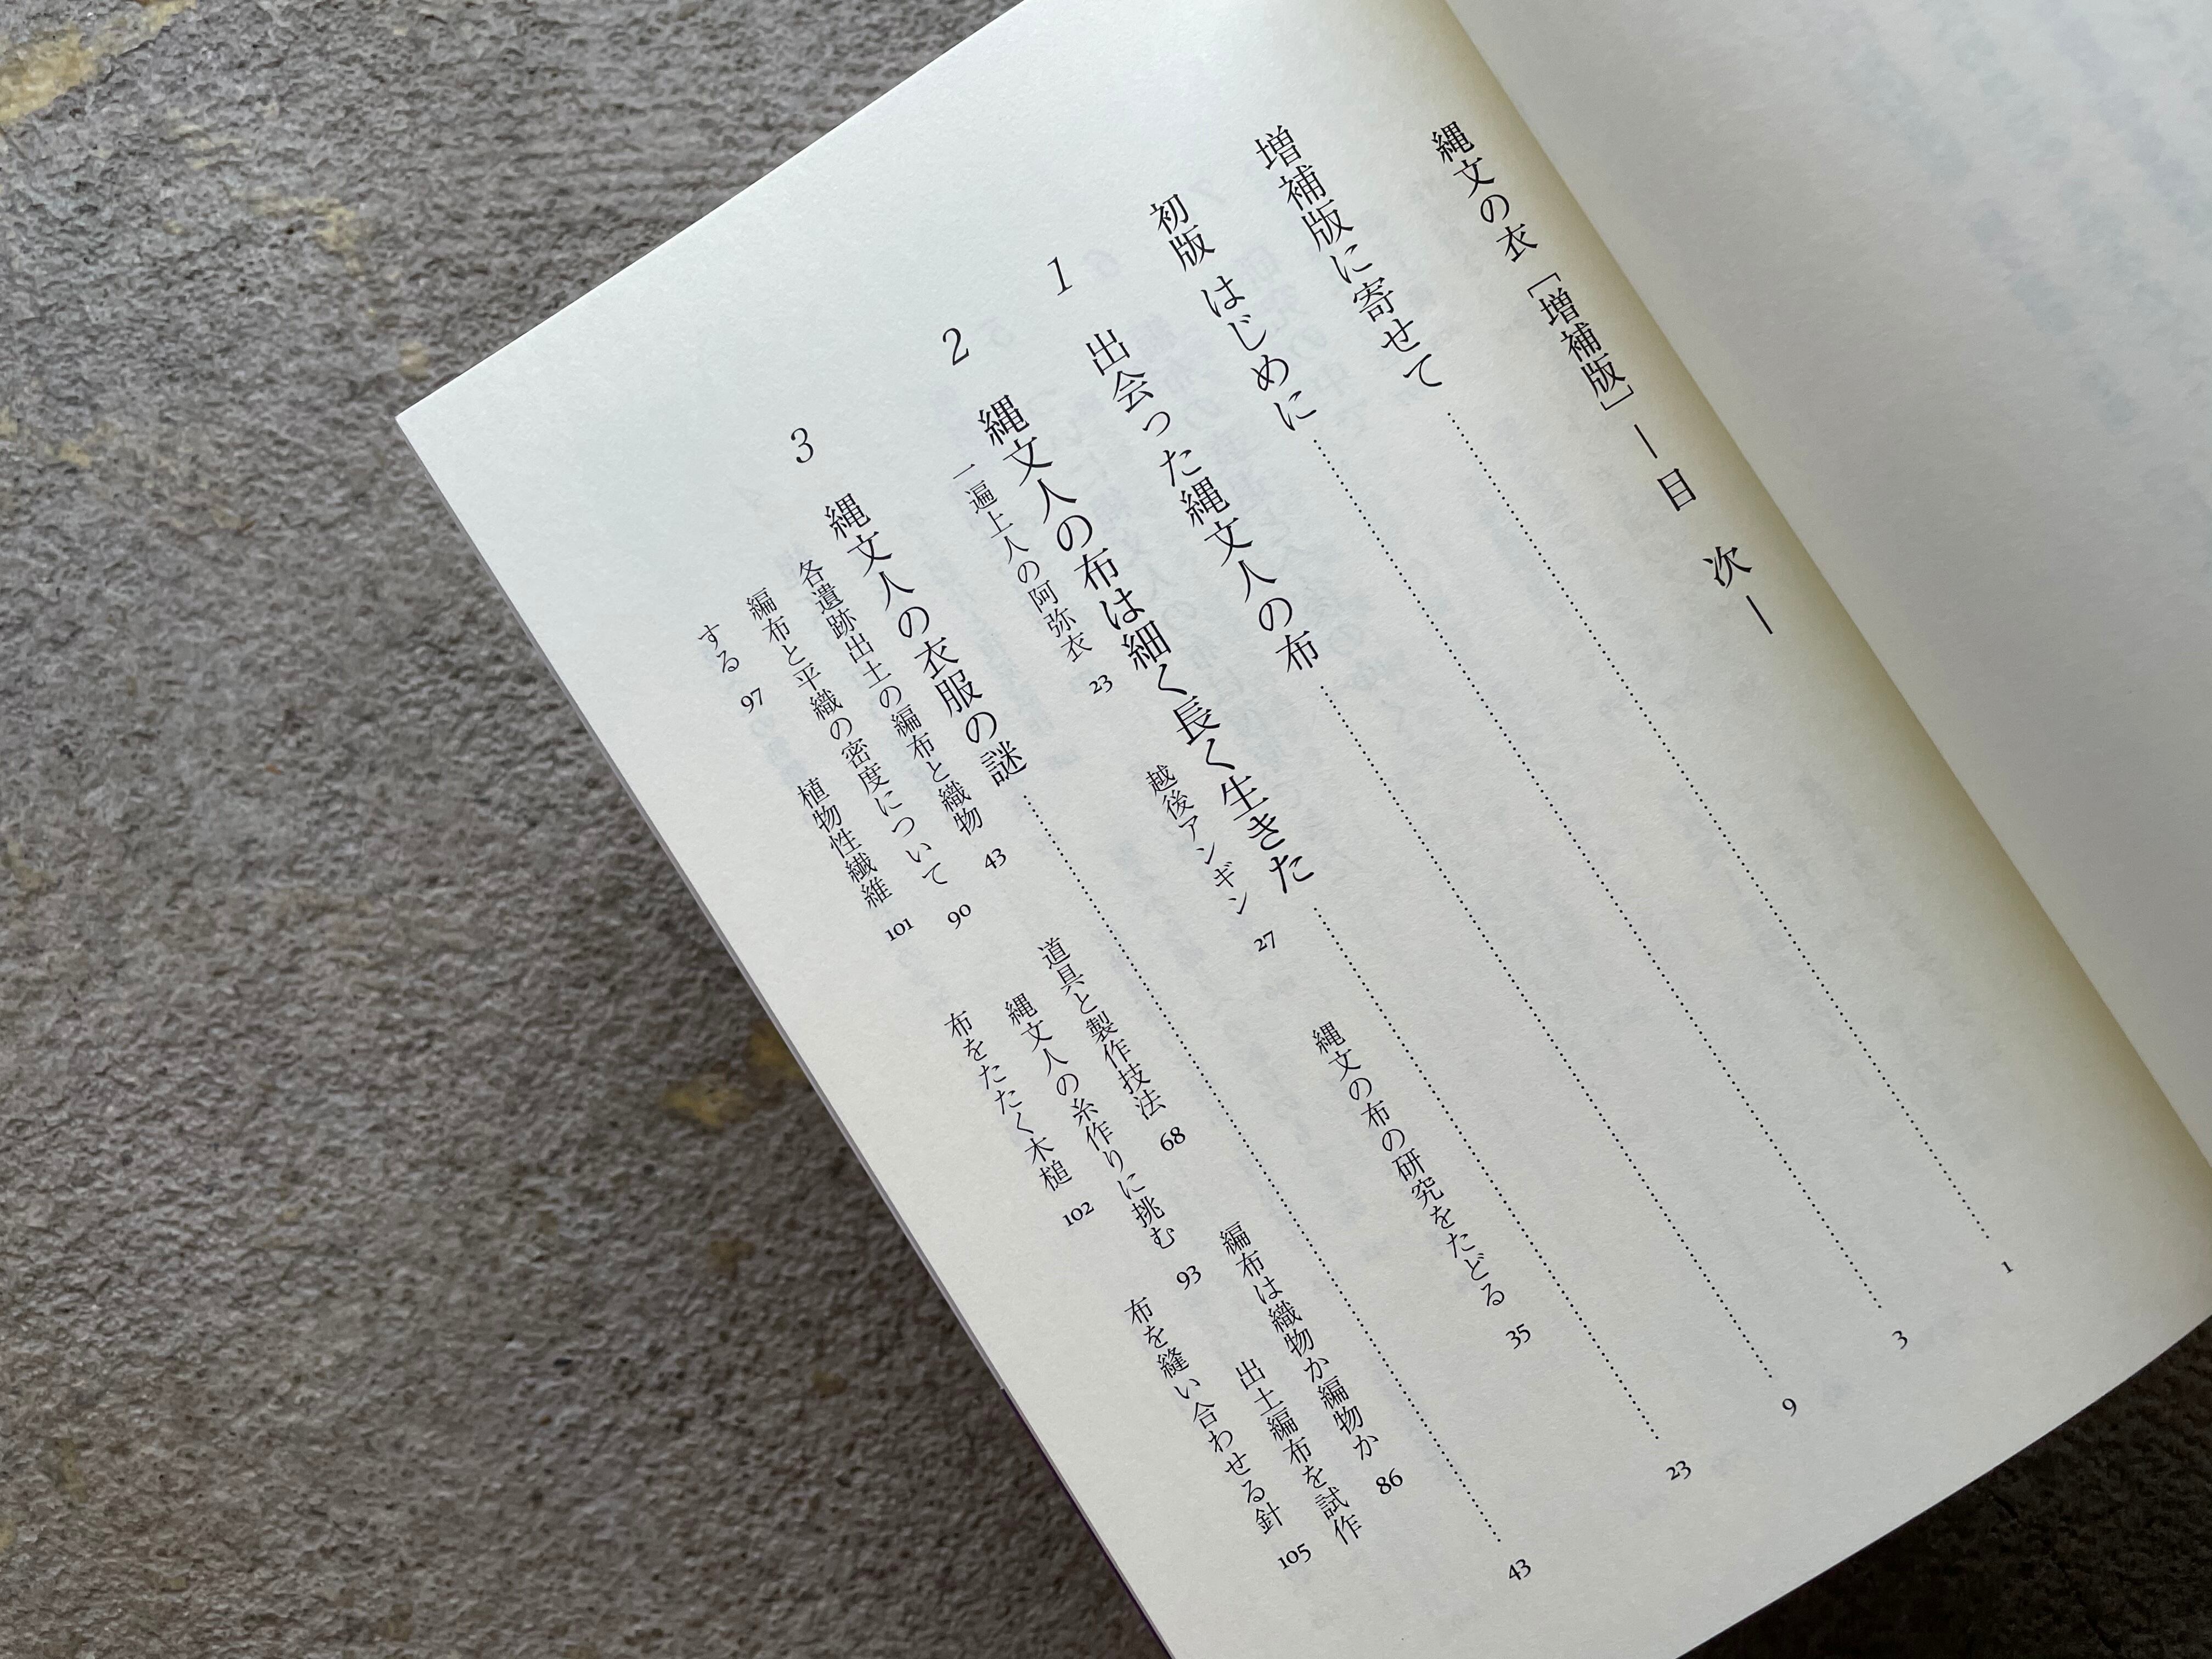 縄文の衣［増補版］―目 次―
増補版に寄せて……………………1
初版 はじめに……………………3
1 出会った縄文人の布……………………9
2 縄文人の布は細く長く生きた……………………23
一遍上人の阿弥衣 23 越後アンギン 27 縄文の布の研究をたどる 35
3 縄文人の衣服の謎……………………43
各遺跡出土の編布と織物 43 道具と製作技法 68 編布は織物か編物か 86
編布と平織の密度について 90 縄文人の糸作りに挑む 93 出土編布を試作
する 97 植物性繊維 101 布をたたく木槌 102 布を縫い合わせる針 105